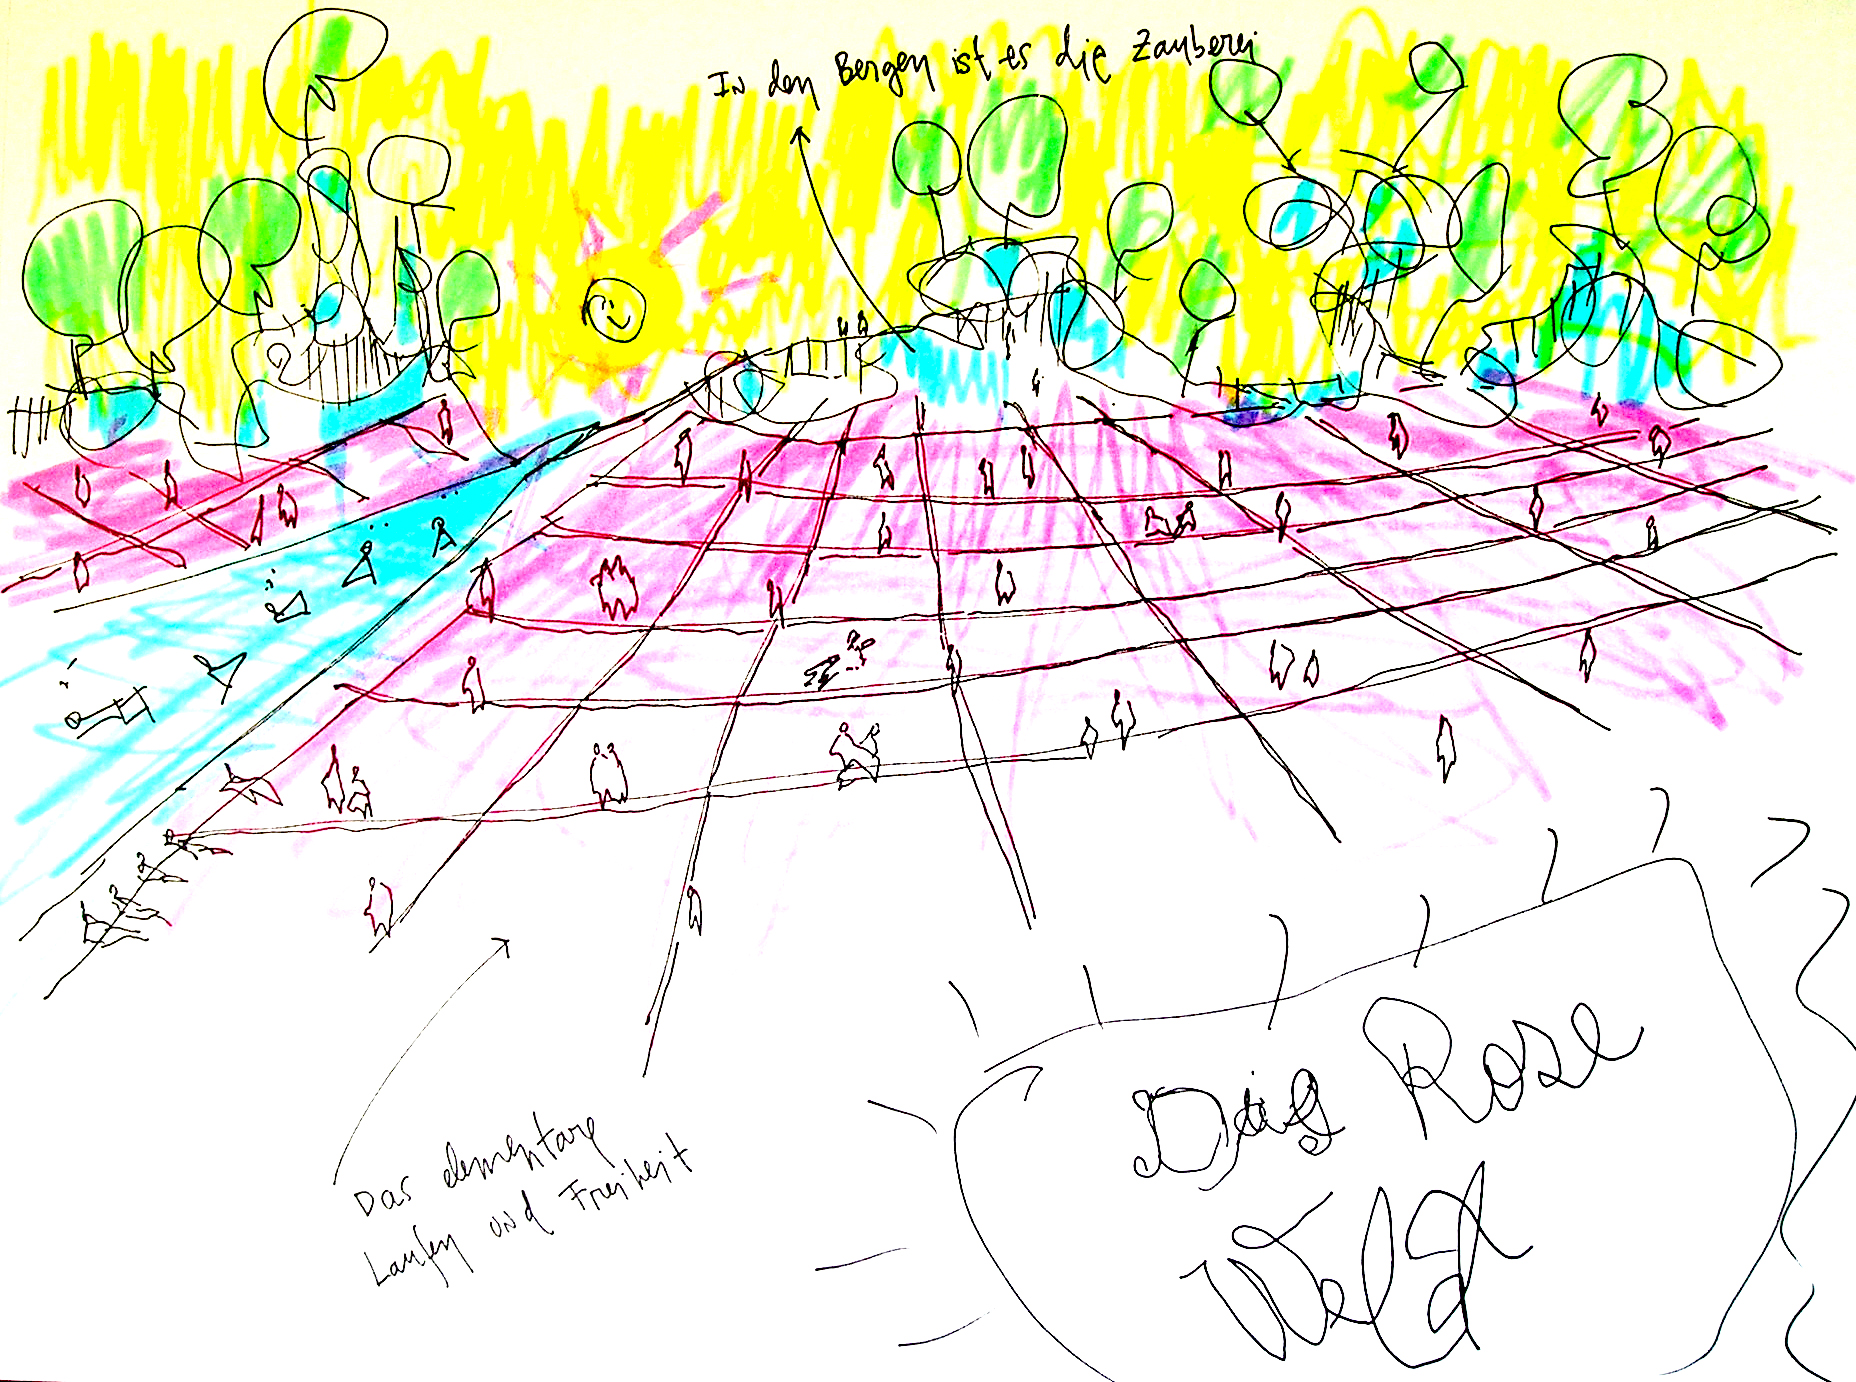 In den Bergen ist es die Zauberei
Das elementare
Laufen und Freiheit
Die Rose
Welt